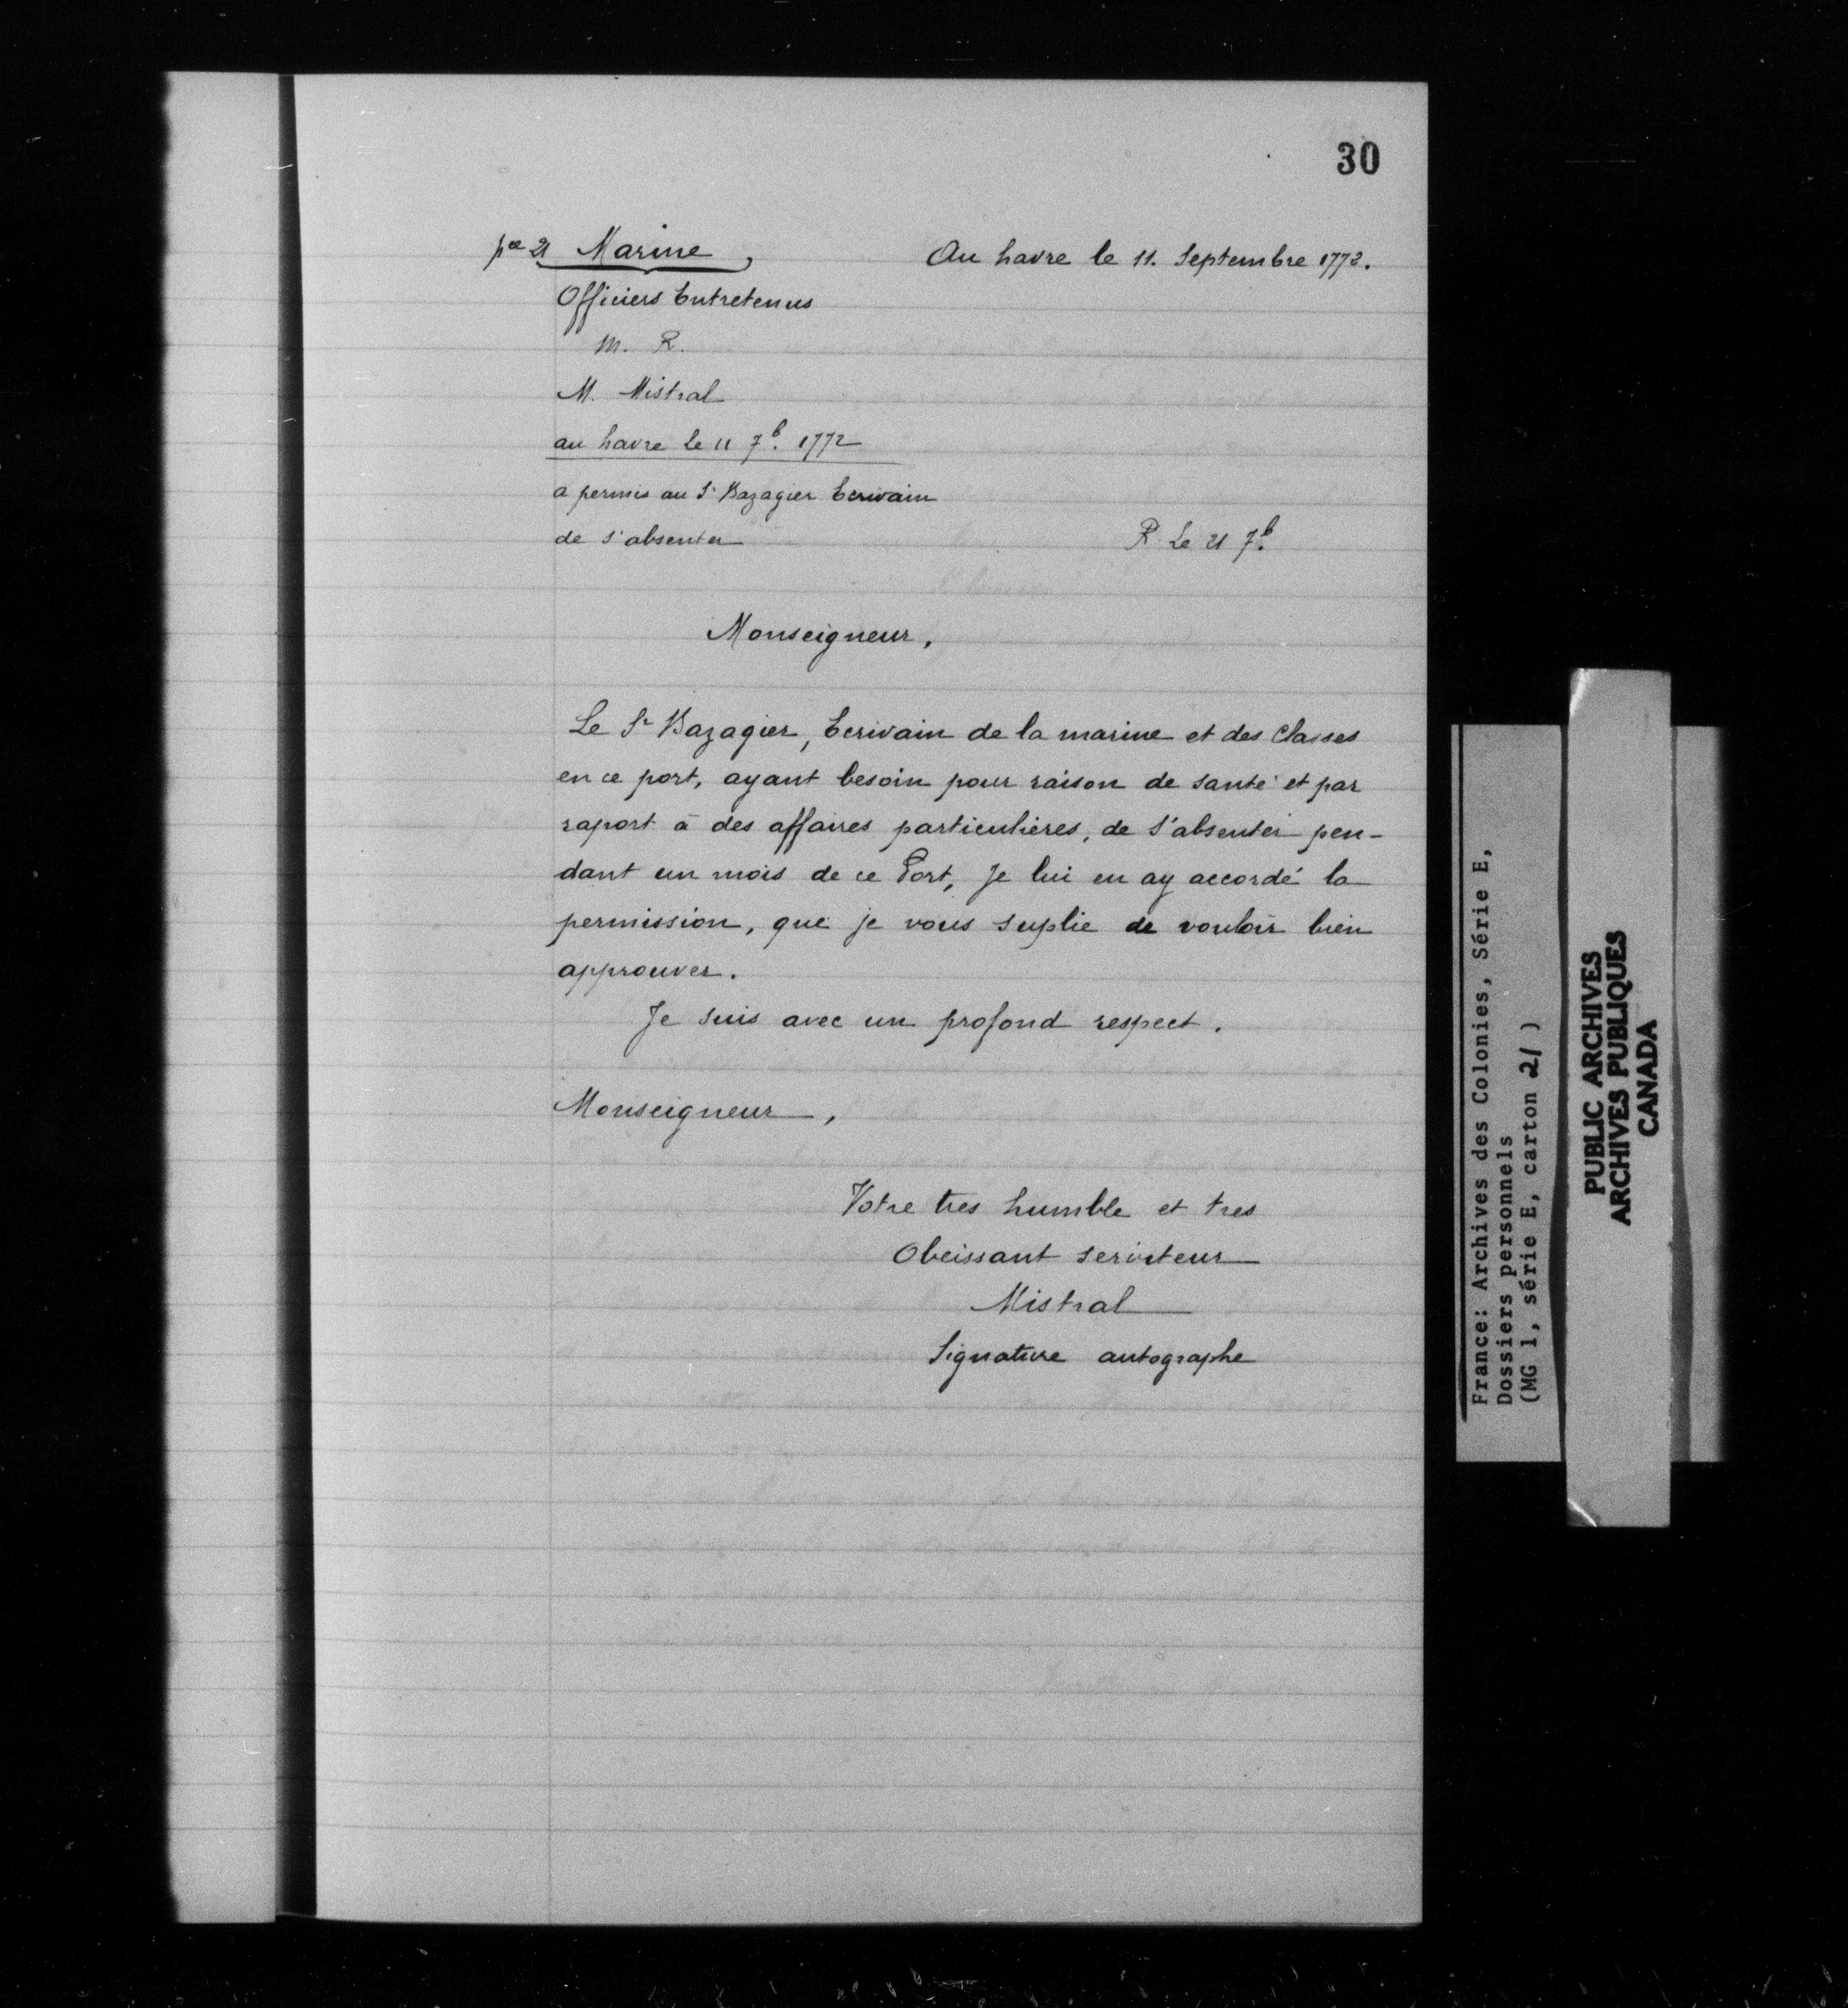 30
pce 21 Marine
Au havre le 11. Septembre 1772.
Officiers Entretenus
M. R.
M. Mistral
au havre le 11 7b. 1772
a permis au Sr Bazagier Ecrivain
de s'absenter
R. Le 21 7b.
Monseigneur,
Le Sr Bazagier, Ecrivain de la marine et des Classes
en ce port, ayant besoin pour raison de santé et par
raport à des affaires particulières, de s'absenter pen-
dant un mois de ce Port, Je lui en ay accordé la
permission, que je vous suplie de vouloir bien
approuver.
Je suis avec un profond respect.
Monseigneur,
Votre tres humble et tres
Obeissant serviteur
Mistral
Signature autographe
France: Archives des Colonies, Série E,
Dossiers personnels
(MG 1, série E, carton 21)
PUBLIC ARCHIVES
ARCHIVES PUBLIQUES
CANADA